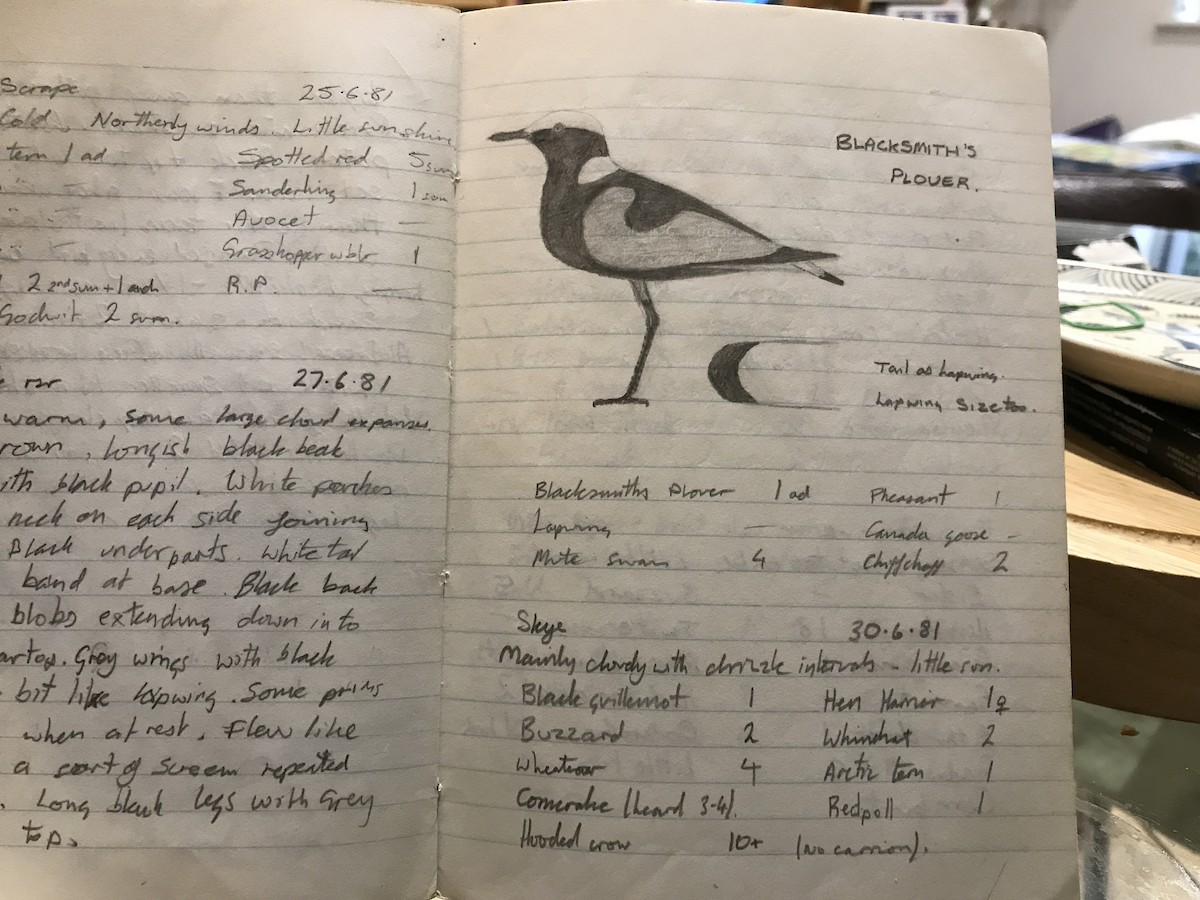 Scrape 25.6.81
Cold, Northerly winds. Little sunshine
tern 1 ad Spotted red 5 sum
Sanderling 1 sum
Avocet —
Grasshopper wblr 1
2 2nd sum + 1 ad R.P. —
Godwit 2 sum.
27.6.81
warm, some large cloud expanses.
longish black beak
black pupil. White patches
neck on each side joining
Black underparts. White tail
band at base. Black back
blobs extending down into
Grey wings with black
bit like lapwing. Some
when at rest. Flew like
a sort of scream repeated
Long black legs with Grey
top.
BLACKSMITH'S
PLOVER.
Tail as lapwing.
Lapwing size too.
Blacksmiths Plover 1 ad Pheasant 1
Lapwing — Canada goose -
Mute swan 4 Chiffchaff 2
Skye 30.6.81
Mainly cloudy with drizzle intervals - little sun.
Black guillemot 1 Hen Harrier 1♀
Buzzard 2 Whinchat 2
Wheatear 4 Arctic tern 1
Corncrake (heard 3-4). Redpoll 1
Hooded crow 10+ (no carrion).